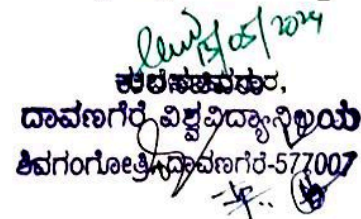 15/05/2024
ಕುಲಸಚಿವರು,
ದಾವಣಗೆರೆ ವಿಶ್ವವಿದ್ಯಾನಿಲಯ
ಶಿವಗಂಗೋತ್ರಿ, ದಾವಣಗೆರೆ-577007